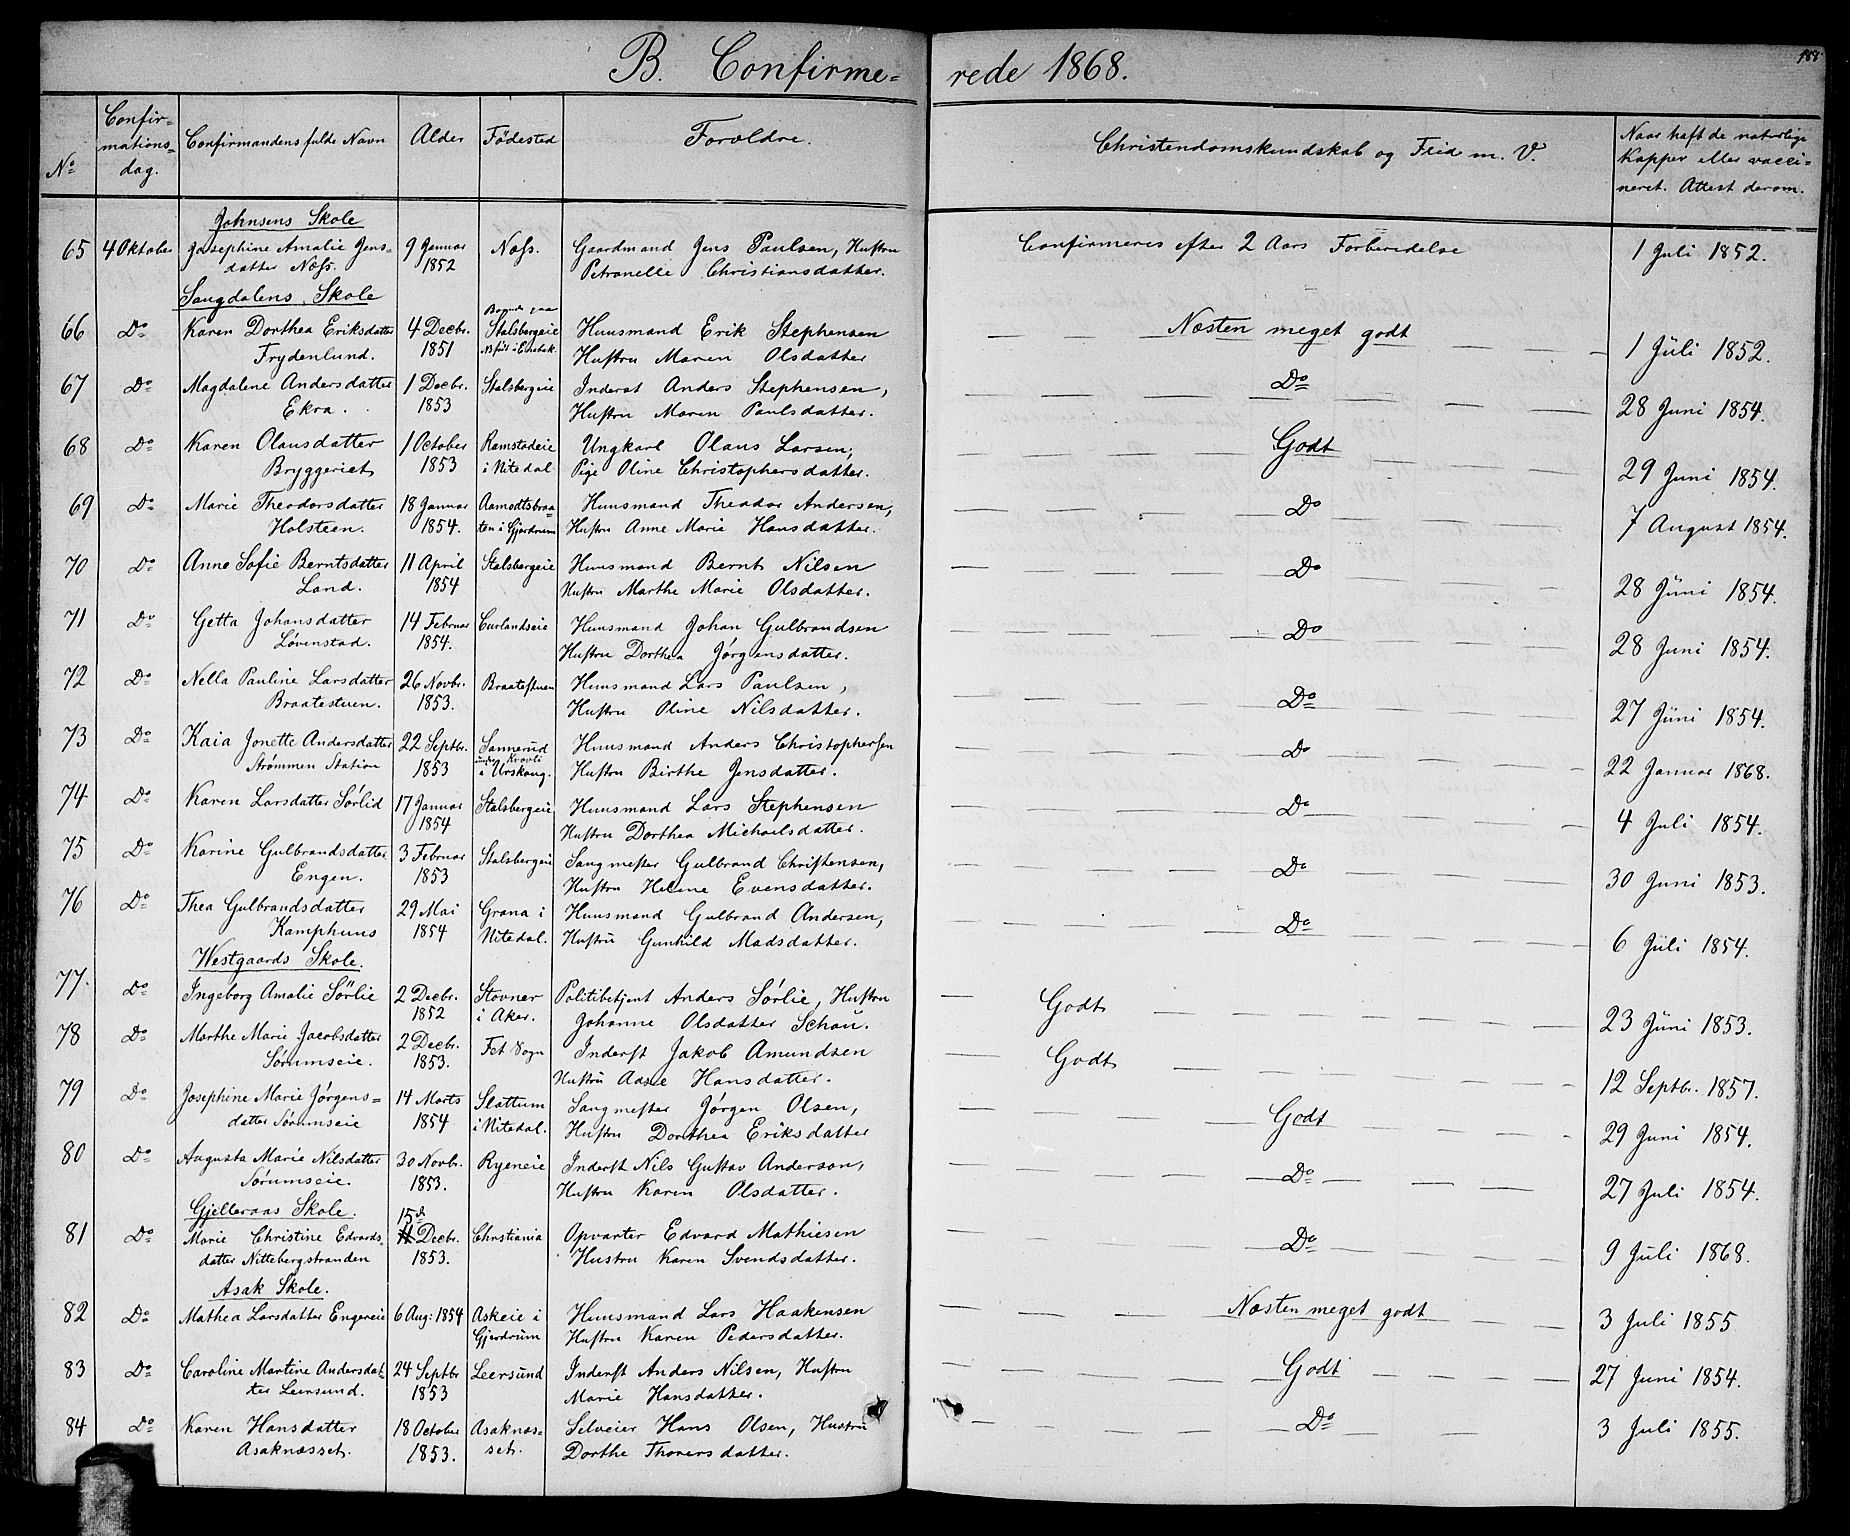 B. Confirme= rede 1868.
188
No
Confir=
mations=
dag.
Confirmandens fulde Navn
Alder
Fødested
Forældre.
Christendomskundskab og Flid m. V.
Naar haft de naturlige
Kopper eller vacci=
neret. Attest derom.
Johnsens Skole
65 4 Oktober Josephine Amalie Jens= 9 Januar Næss. Gaardmand Jens Paulsen, Hustru Confirmeres efter 2 Aars Forberedelse 1 Juli 1852.
datter Næss. 1852 Petronelle Christiansdatter.
Saugdalens Skole
66 Do Karen Dorthea Eriksdatter 4 Decbr. Stalsbergeie Huusmand Erik Stephensen Næsten meget godt 1 Juli 1852.
Frydenlund. 1851 Hustru Maren Olsdatter
67 Do Magdalene Andersdatter 1 Decbr. Stalsbergeie Inderst Anders Stephensen, Do 28 Juni 1854.
Ekra. 1853 Hustru Maren Paulsdatter.
68 Do Karen Olausdatter 1 October Ramstadeie Ungkarl Olaus Larsen, Godt 29 Juni 1854.
Bryggeriet 1853 i Nitedal Pige Oline Christophersdatter.
69 Do Marie Theodorsdatter 18 Januar Aamodtsbraa= Huusmand Theodor Andersen, Do 7 August 1854.
Holsteen. 1854. ten i Gjerdrum Hustru Anne Marie Hansdatter.
70 Do Anne Sofie Berntsdatter 11 April Stalsbergeie Huusmand Bernt Nilsen Do 28 Juni 1854.
Land. 1854 Hustru Marthe Marie Olsdatter.
71 Do Getta Johansdatter 14 Februar Curlandseie Huusmand Johan Gulbrandsen Do 28 Juni 1854.
Løvenstad. 1854. Hustru Dorthea Jørgensdatter.
72 Do Nella Pauline Larsdatter 26 Novbr. Braatestuen Huusmand Lars Paulsen, Do 27 Juni 1854.
Braatestuen. 1853. Hustru Oline Nilsdatter.
73 Do Kaia Jonette Andersdatter 22 Septbr. Sannerud Huusmand Anders Christophersen Do 22 Januar 1868.
Strømmen Station 1853 i Urskoug. Hustru Birthe Jensdatter.
74 Do Karen Larsdatter Sørlid 17 Januar Stalsbergeie Huusmand Lars Stephensen Do 4 Juli 1854.
1854 Hustru Dorthea Michaelsdatter.
75 Do Karine Gulbrandsdatter 3 Februar Stalsbergeie Saugmester Gulbrand Christensen, Do 30 Juni 1853.
Engen. 1853 Hustru Helene Evensdatter.
76 Do Thea Gulbrandsdatter 29 Mai Grana i Huusmand Gulbrand Andersen, Do 6 Juli 1854.
Kamphuus 1854 Nitedal. Hustru Gunhild Madsdatter.
Westgaards Skole.
77. Do Ingeborg Amalie Sørlie 2 Decbr. Stovner Politibetjent Anders Sørlie, Hustru Godt 23 Juni 1853.
1852 i Aker. Johanne Olsdatter Schou.
78 Do Marthe Marie Jacobsdatter 2 Decbr. Fet Sogn Inderst Jakob Amundsen Godt 12 Septbr. 1857.
Sørumseie. 1853. Hustru Aase Hansdatter.
79 Do Josephine Marie Jørgens= 14 Marts Slattum Saugmester Jørgen Olsen, Godt 29 Juni 1854.
datter Sørumseie 1854 i Nitedal. Hustru Dorthea Eriksdatter
80 Do Augusta Marie Nilsdatter 30 Novbr. Ryeneie Inderst Nils Gustav Anderson, Do 27 Juli 1854.
Sørumseie. 1853. Hustru Karen Olsdatter.
Gjelleraas Skole. 15de
81 Do Marie Christine Edvards= 11 Decbr. Chrstiania Opvarter Edvard Mathiesen Do 9 Juli 1868.
datter Nittebergstranden 1853. Hustru Karen Svendsdatter.
Asak Skole.
82 Do Mathea Larsdatter Engereie 6 Aug: 1854 Askeie i Huusmand Lars Haakensen Næsten meget godt 3 Juli 1855
Gjerdrum Hustru Karen Pedersdatter.
83 Do Caroline Martine Andersdat= 24 Septbr Leersund Inderst Anders Nilsen, Hustru Godt 27 Juni 1854.
ter Leersund. 1853 Marie Hansdatter.
84 Do Karen Hansdatter 18 October Asaknæs= Selveier Hans Olsen, Hustru Do 3 Juli 1855.
Asaknæsset. 1853. set. Dorthe Thorersdatter.